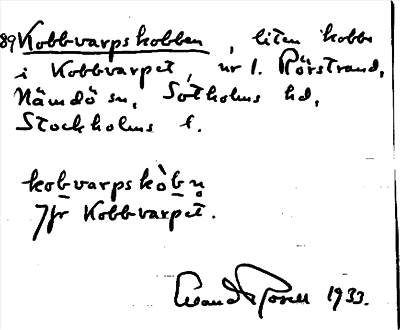 89 Kobbvarpskobben, liten kobbe
i Kobbvarpet, nr 1. Rörstrand,
Nämdö sn, Sotholms hd,
Stockholms l.
kobvarpskòbn̥
Jfr Kobbvarpet.
1933.